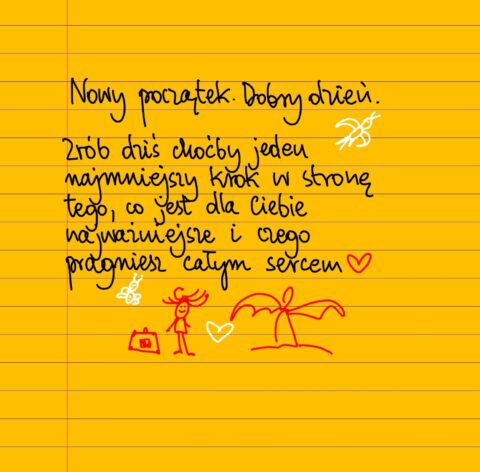 Nowy początek. Dobry dzień.
Zrób dziś choćby jeden
najmniejszy krok w stronę
tego, co jest dla Ciebie
najważniejsze i czego
pragniesz całym sercem